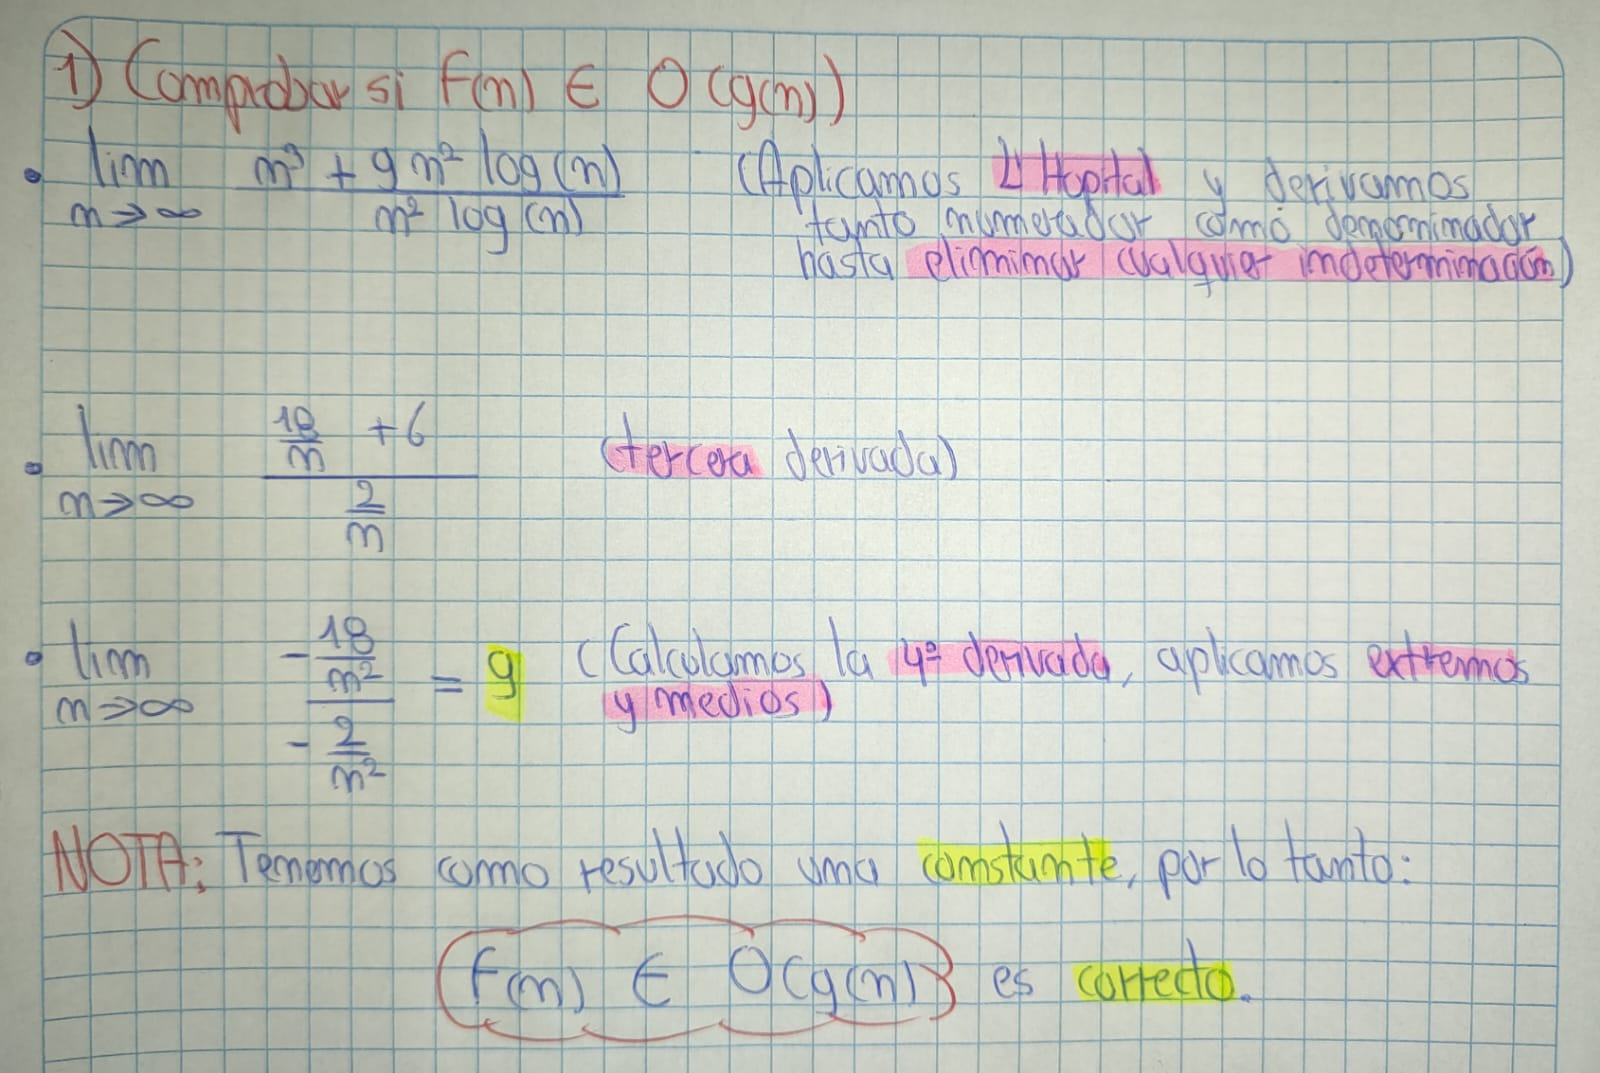 1) Comprobar si f(n) ∈ O(g(n))
• lim n→∞ (n³ + 9n² log(n)) / (n² log(n)) (Aplicamos L'Hopital y derivamos
tanto numerador como denominador
hasta eliminar cualquier indeterminación)
• lim n→∞ (18/n + 6) / (2/n) (tercera derivada)
• lim n→∞ (-18/n²) / (-2/n²) = 9 (Calculamos la 4ª derivada, aplicamos extremos
y medios)
NOTA: Tenemos como resultado una constante, por lo tanto:
f(n) ∈ O(g(n)) es correcto.